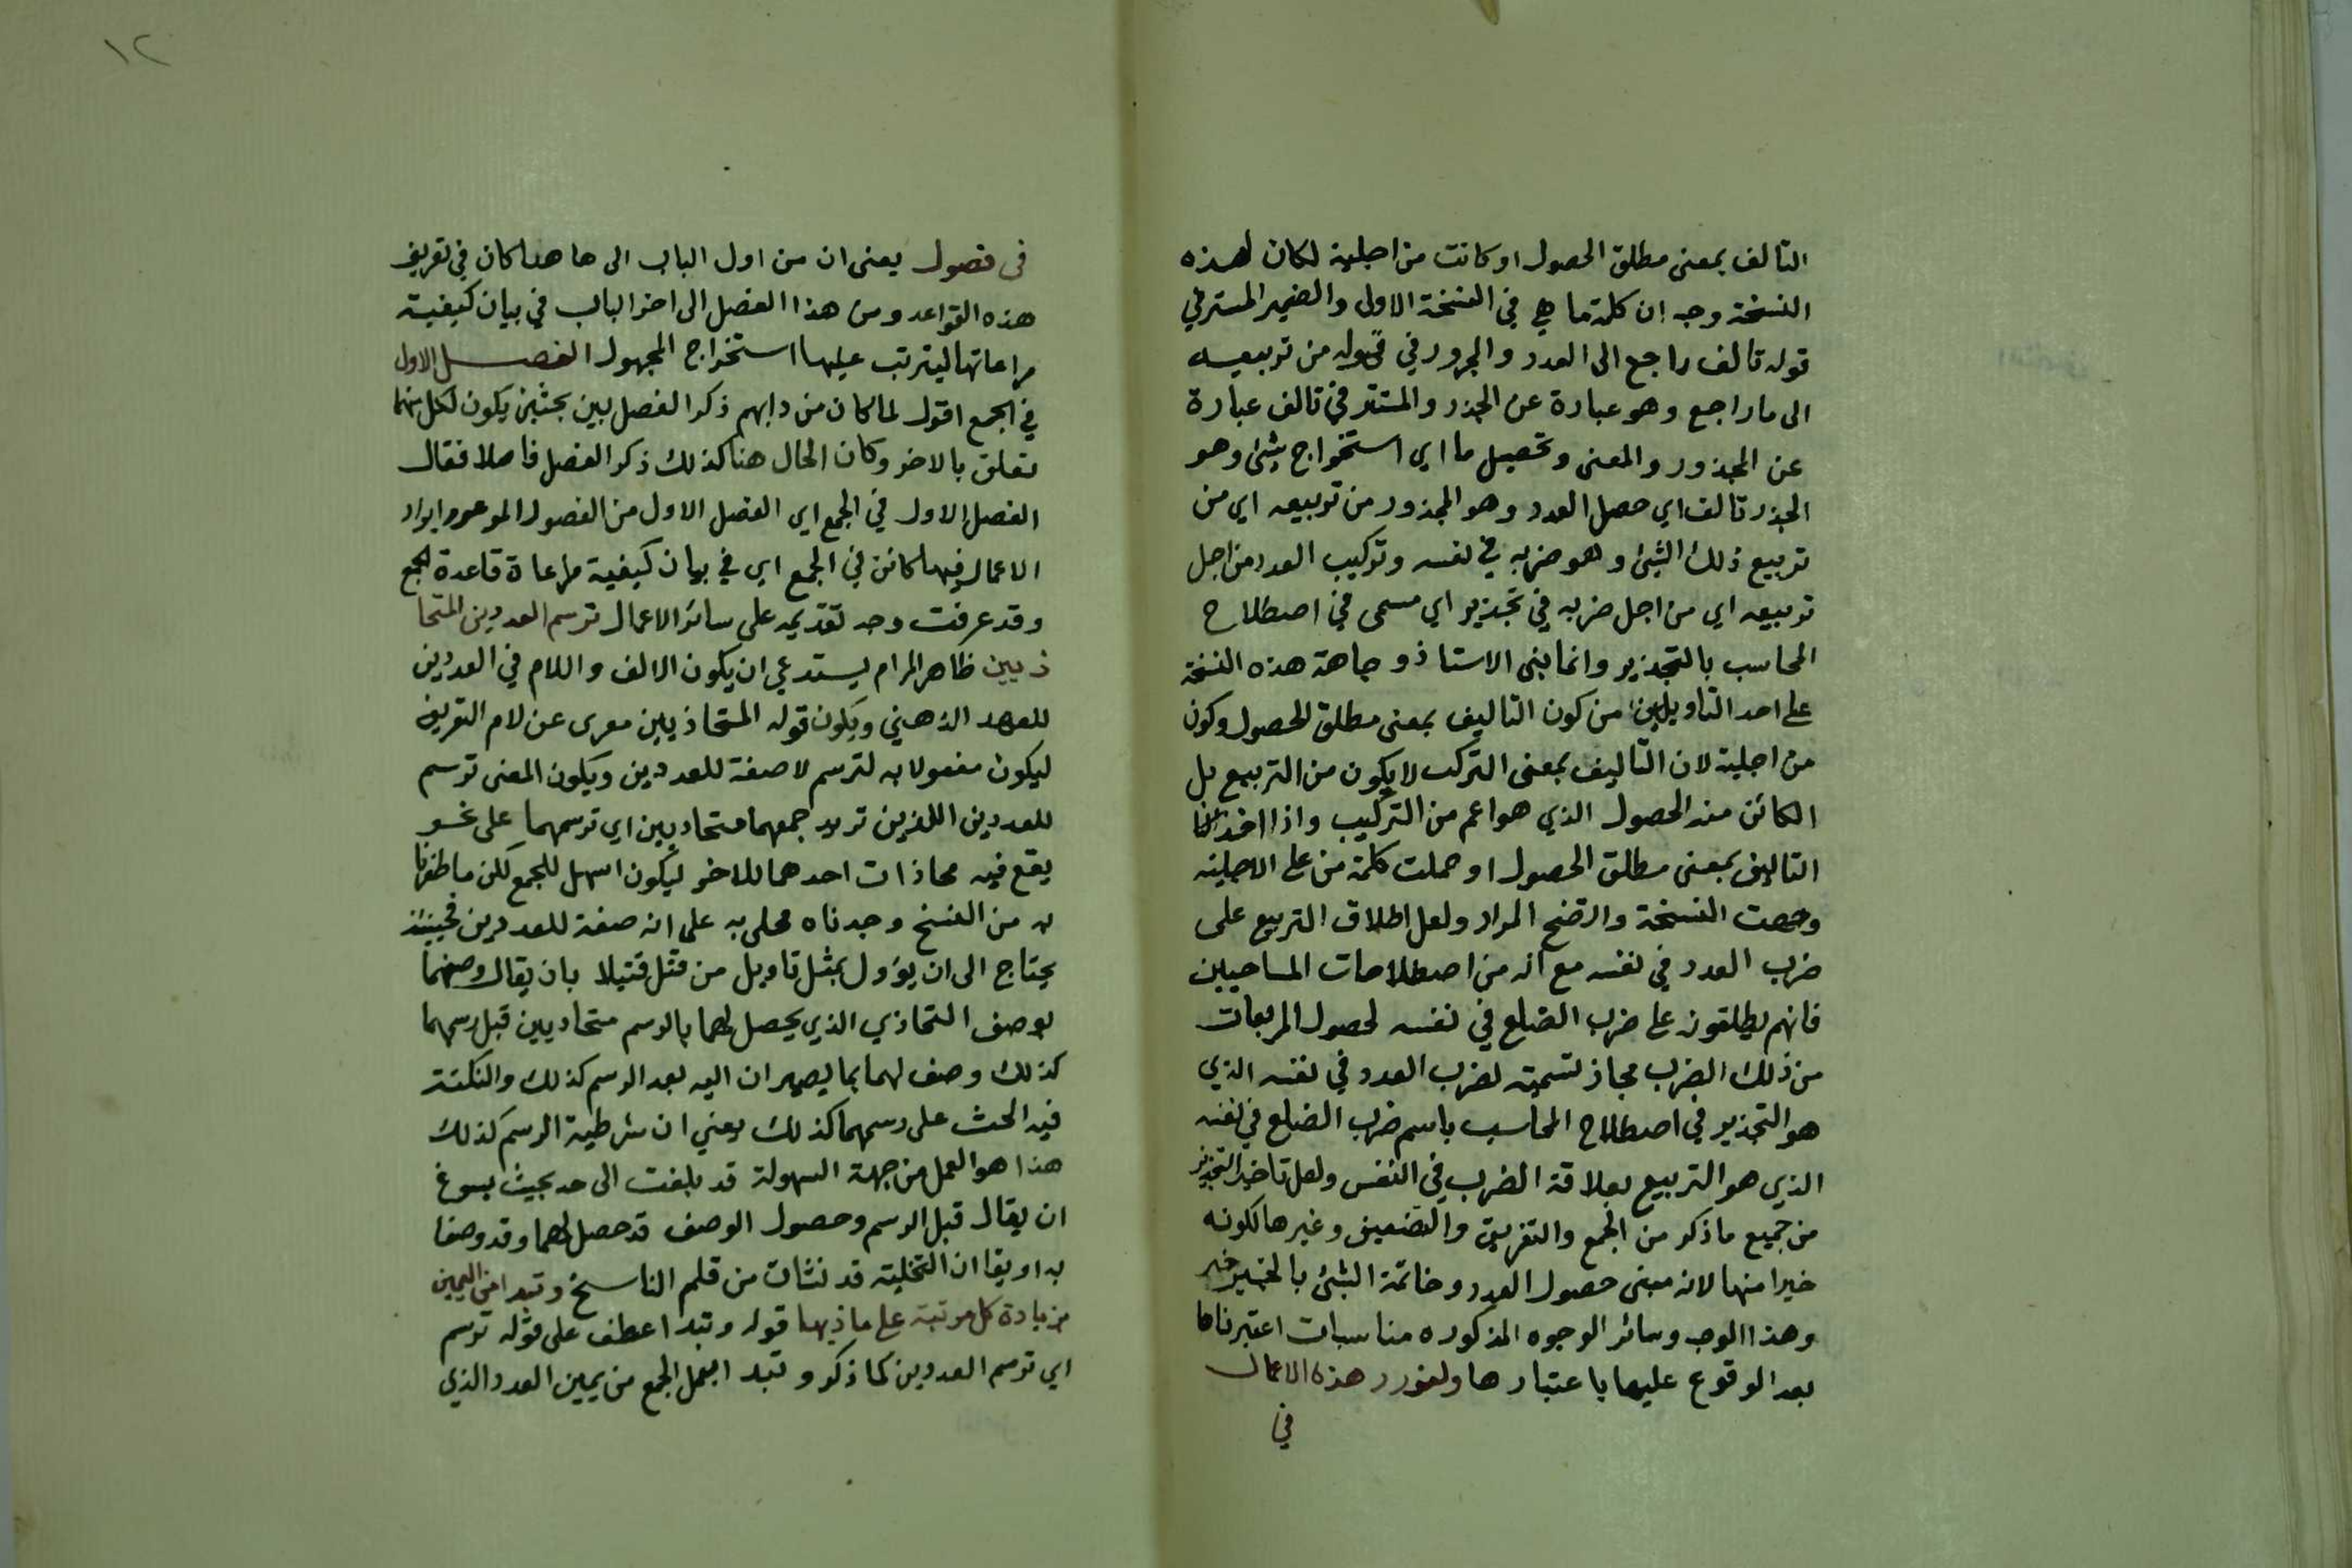 التالف بمعنى مطلق الحصول او كانت من اجلية لكان لهذه
النسخة وجه ان كلمة ما هي في النسخة الاولى والضمير المستتر في
قوله تالف راجع الى العدد والمجرور في قوله من تربيعه
الى ما راجع وهو عبارة عن الجذر والمستتر في تالف عبارة
عن المجذور والمعنى وتحصيل ما اي استخراج شئ وهو
الجذر تالف اي حصل العدد وهو المجذور من تربيعه اي من
تربيع ذلك الشئ وهو ضربه في نفسه وتركيب العدد من اجل
تربيعه اي من اجل ضربه في تجذير اي مسمى في اصطلاح
المحاسب بالتجذير وانما بنى الاستاذ وجاهة هذه النسخة
على احد التاويلين من كون التاليف بمعنى مطلق الحصول وكون
من اجلية لان التاليف بمعنى التركب لا يكون من التربيع بل
الكائن منه الحصول الذي هو اعم من التركيب واذا اخذ
التاليف بمعنى مطلق الحصول او حملت كلمة من على الاجلية
وصحت النسخة واتضح المراد ولعل اطلاق التربيع على
ضرب العدد في نفسه مع انه من اصطلاحات المساحيين
فانهم يطلقونه على ضرب الضلع في نفسه لحصول المربعات
من ذلك الضرب مجاز لتسميته لضرب العدد في نفسه الذي
هو التجذير في اصطلاح المحاسب باسم ضرب الضلع في نفسه
الذي هو التربيع بعلاقة الضرب في النفس ولعل تاخير التجذير
من جميع ما ذكر من الجمع والتفريق والتضعيف وغيرها لكونه
خيرا منها لانه مبنى حصول العدد وخاتمة الشئ بالخير خير
وهذا الوجه وسائر الوجوه المذكوره مناسبات اعتبرناها
بعد الوقوع عليها باعتبارها ولنورد هذه الاعمال
في
١٢
فى فصول يعنى ان من اول الباب الى هاهنا كان في تعريف
هذه القواعد ومن هذا الفصل الى اخر الباب في بيان كيفية
مراعاتها ليترتب عليها استخراج المجهول الفصل الاول
في الجمع اقول لما كان من دابهم ذكر الفصل بين بحثين يكون لكل منهما
تعلق بالاخر وكان الحال هنا كذلك ذكر الفصل فاصلا فقال
الفصل الاول في الجمع اي الفصل الاول من الفصول الموعود ايراد
الاعمال فيها كائن في الجمع اي في بيان كيفية مراعاة قاعدة الجمع
وقد عرفت وجه تقديمه على سائر الاعمال ترسم العددين المتحا
ذيين ظاهر المرام يستدعي ان يكون الالف واللام في العددين
للعهد الذهني ويكون قوله المتحاذيين معرى عن لام التعريف
ليكون مفعولا به لترسم لا صفة للعددين ويكون المعنى ترسم
للعددين اللذين تريد جمعهما متحاذيين اي ترسمهما على نحو
يقع فيه محاذات احدهما للاخر ليكون اسهل للجمع لكن ما ظفرنا
به من النسخ وجدناه محلى به على انه صفة للعددين فحينئذ
يحتاج الى ان يؤول بمثل تاويل من قتل قتيلا بان يقال وصفهما
بوصف التحاذي الذي يحصل لهما بالرسم متحاذيين قبل رسمهما
كذلك وصف لهما بما يصيران اليه بعد الرسم كذلك والنكتة
فيه الحث على رسمهما كذلك يعني ان شرطية الرسم كذلك
هذا هو العمل من جهة السهولة قد بلغت الى حد بحيث يسوغ
ان يقال قبل الرسم وحصول الوصف قد حصل لهما وقد وصفا
به او يقا ان التخلية قد نشات من قلم الناسخ وتبدا من اليمين
بزيادة كل مرتبة على ما ذيها قوله وتبدا عطف على قوله ترسم
اي ترسم العددين كما ذكر وتبدا بعمل الجمع من يمين العدد الذي